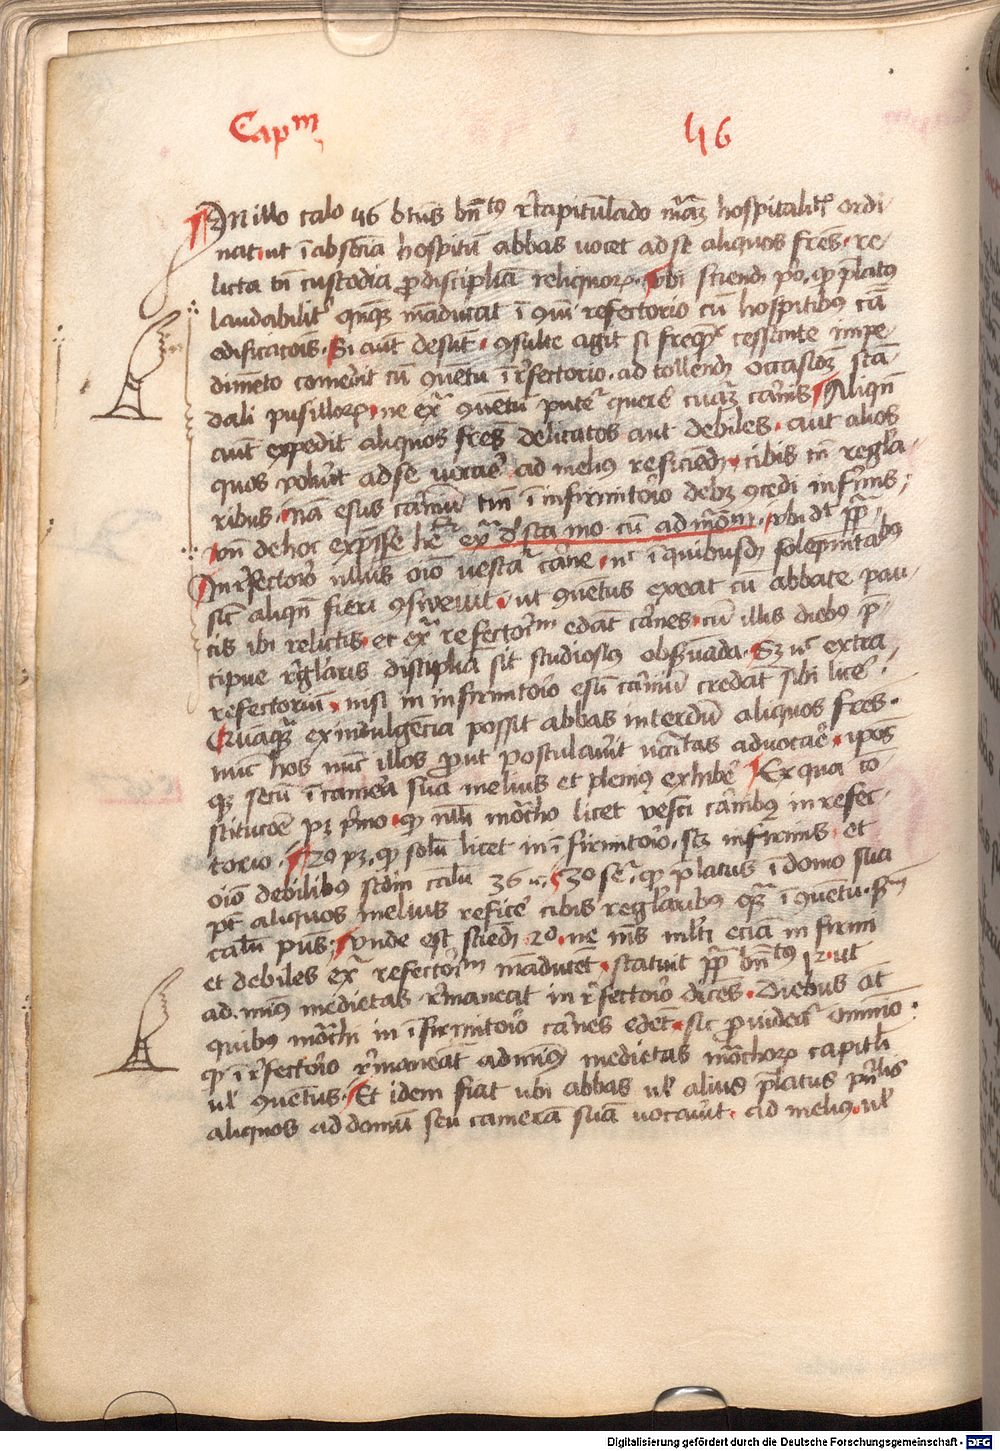 Capm 46
In illo calo 46 btus bntus recapitulado mam hospitalitis ordi
nat ut i absencia hospitum abbas vocet ad se aliquos fres re
licta tn custodia p disciplia reliquorum. Ubi sciend po, q platus
laudabilit manducat i refectorio cu hospitibus ca
edificatois. Si aut desut, consulte agit si frequent cessante impe
dimeto comederit cu conuetu i refectorio. ad tollend occasioem scan
dali pusillorum ne ext conuetu putet querere esum carnis. Aliqn
aut expedit aliquos fres delicatos aut debiles. aut alios
quos voluit ad se vocare ad melius reficiend cibis tn regula
ribus. na esus carniu tm i infirmitorio debet concedi infirmis
un de hoc expresse hetur ext de sta mo. cu ad monm. ubi dr
In refectorio nullus oio vescat carne, nec i quibusd solepnitatibus
sic aliqn fieri consuevit, ut conuetus exeat cu abbate pau
cis ibi relictis, et ext refectorium edat carnes, cu illis diebus p
cipue reglaris disciplia sit studiosius obseruada. Sed nec extra
refectorium, nisi in infirmitorio esum carnium credat sibi licere.
Quaquam ex indulgencia possit abbas interdum aliquos fres.
nunc hos nunc illos prout postulauit necitas aduocare ipos
que secu i camera sua melius et plenius exhibere. Ex qua co
stitucoe pz primo q nulli mocho licet vesci carnibus in refec
torio. 2o pz, q solum licet in infirmitorio, scz infirmis et
oio debilibus scdm calum 36 3o sequitur q platus i domo sua
pt aliquos melius reficere cibis reglaribus quam i conuetu.
calum pns. Unde est sciend 2o ne nimis multi ecia infirmi
et debiles ext refectorium manducet, statuit pp bntus 12 ut
ad minus medietas remaneat in refectorio dices. Diebus at
quibus mochi in infirmitorio carnes edet sic prouideatur omnino
q i refectorio remaneat ad minus medietas mochorum capitli
vl conuetus. Et idem fiat ubi abbas vl alius platus
aliquos ad domum seu cameram suam vocauit. ad melius vl
Digitalisierung gefördert durch die Deutsche Forschungsgemeinschaft - DFG